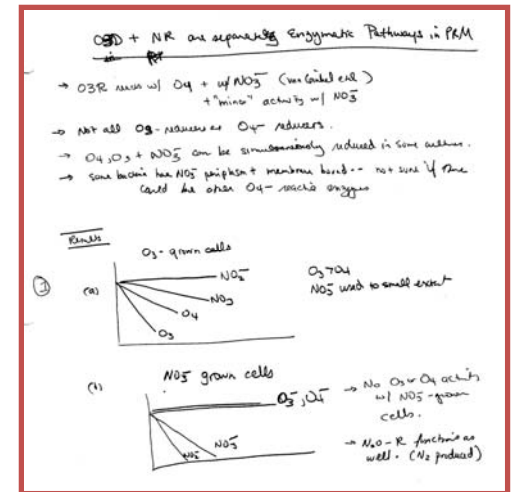 O3D + NR are separate Enzymatic Pathways in PRM
→ O3R reacts w/ O4 + w/ NO3-
+ "minor" activity w/ NO3-
→ Not all O3- reducers are O4- reducers.
→ O4, O3 + NO3- can be simultaneously reduced in some cultures.
→ some bacteria has NO3- periplasm + membrane bound -- not sure if there
could be other O4- reactive enzymes
Results
① (a) O3- grown cells
NO2-
NO3
O4
O3
O3 > O4
NO3- used to small extent
(b) NO3- grown cells
O3-, O4-
NO3-
→ No O3 or O4 activity
w/ NO3- grown
cells.
→ N2O-R functions as
well. (N2 produced)